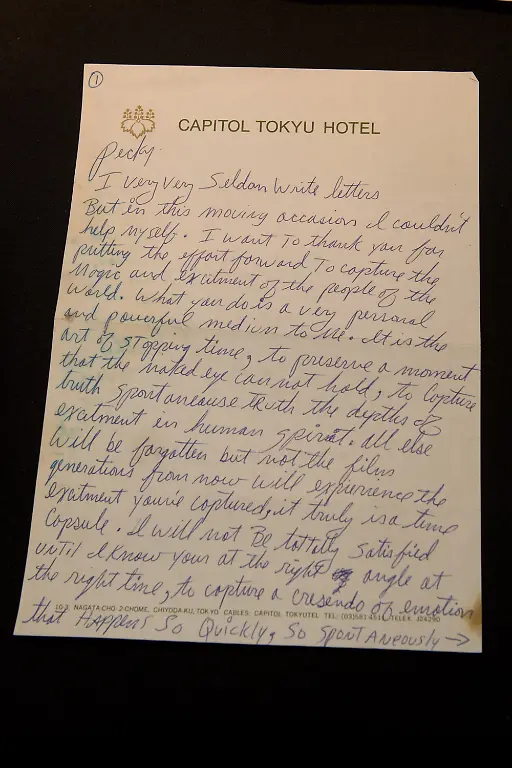 1
CAPITOL TOKYU HOTEL
Pecky
I very very Seldon Write letters
But in this moving occasion I couldn't
help myself. I want To thank you for
putting the effort forward To capture the
Magic and excitment of the people of the
world. What you do is a very personal
and powerful medium to me. It is the
art of stopping time, to preserve a moment
that the naked eye can not hold, to capture
truth spontaneouse truth the depths of
excitment in human spirit. All else
will be forgotten but not the films
generations from now will expierience the
excitment you've captured, it truly is a time
Capsule. I will not Be tottally satisfied
until I know your at the right angle at
the right time, to capture a cresendo of emotion
10-3, NAGATA-CHO 2-CHOME, CHIYODA-KU, TOKYO. CABLES: CAPITOL TOKYUTEL TEL: (03)581-4511 TELEX J24290
that Happens So Quickly, So Spontaneously →